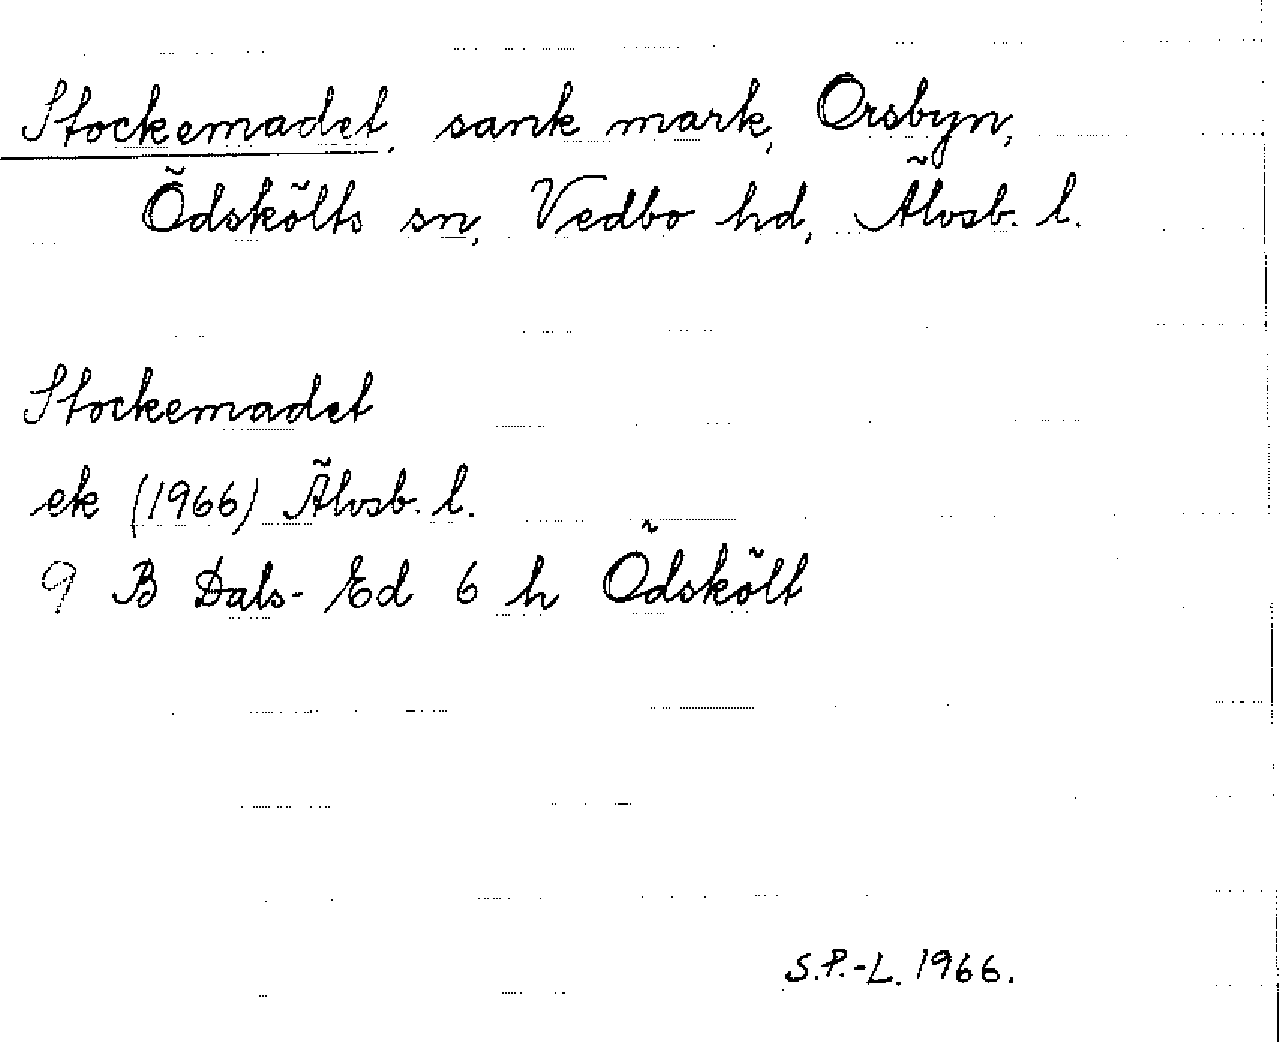 Stockemadet, sank mark, Orsbyn,
Ödskölts sn, Vedbo hd, Älvsb. l.
Stockemadet
ek (1966) Älvsb. l.
9 B Dals-Ed 6 h Ödskölt
S.P.-L. 1966.